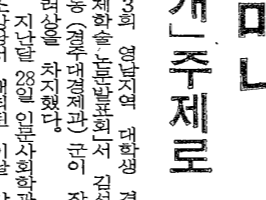 」주제로
3회 영남지역 대학생
제학술논문발표회」서 김
동(경주대경제과)군이 장
려상을 차지했다.
지난달 28일 인문사회학